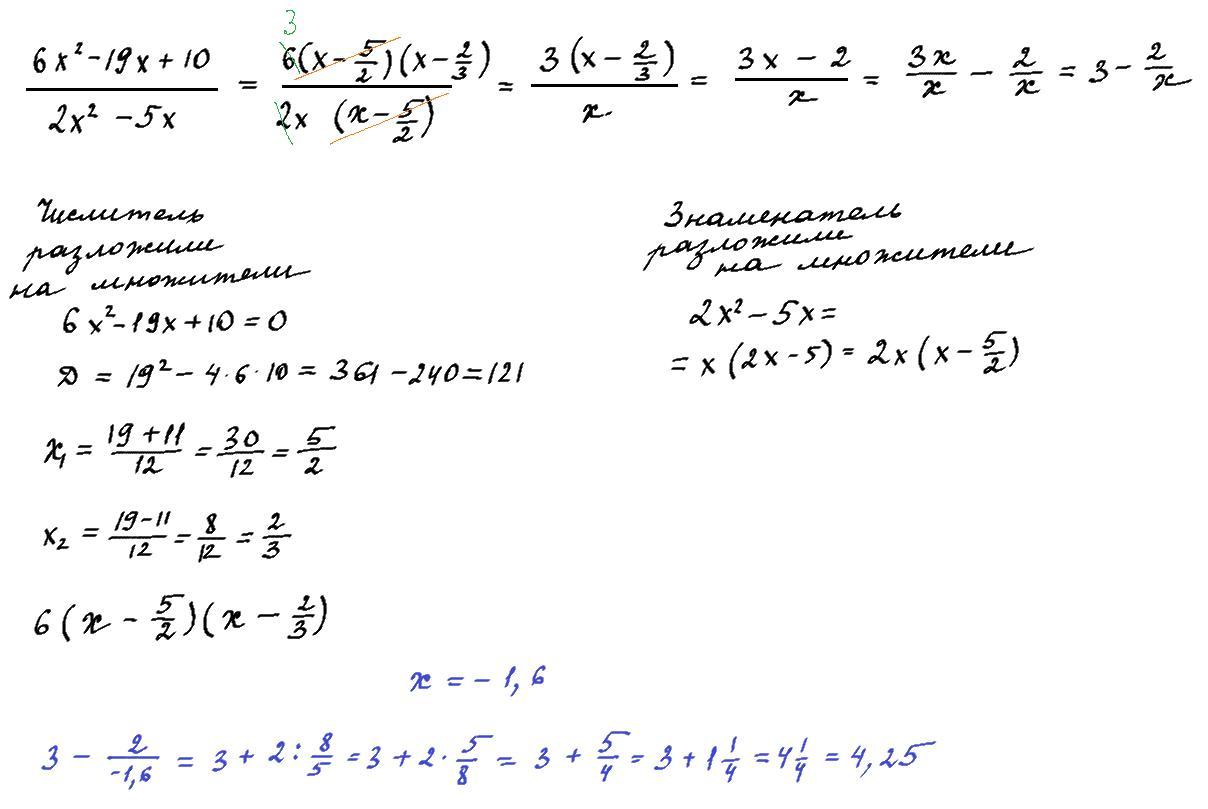 3
(6x² - 19x + 10)/(2x² - 5x) = 6(x - 5/2)(x - 2/3)/(2x (x - 5/2)) = 3(x - 2/3)/x = (3x - 2)/x = 3x/x - 2/x = 3 - 2/x
Числитель
разложили
на множители
6x² - 19x + 10 = 0
D = 19² - 4·6·10 = 361 - 240 = 121
x₁ = (19 + 11)/12 = 30/12 = 5/2
x₂ = (19 - 11)/12 = 8/12 = 2/3
6(x - 5/2)(x - 2/3)
Знаменатель
разложили
на множители
2x² - 5x =
= x(2x - 5) = 2x(x - 5/2)
x = -1,6
3 - 2/(-1,6) = 3 + 2 : 8/5 = 3 + 2 · 5/8 = 3 + 5/4 = 3 + 1 1/4 = 4 1/4 = 4,25